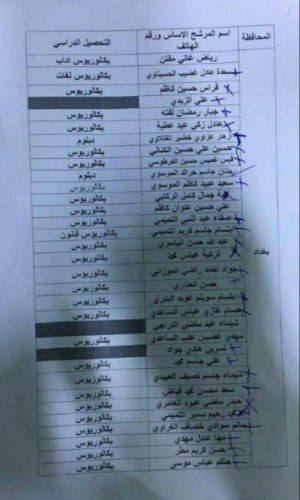 المحافظة اسم المرشح الاساس ورقم الهاتف التحصيل الدراسي
رياض غالي مفتن بكالوريوس اداب
سعدة عادل غضيب الحسيناوي بكالوريوس لغات
فراس حسين كاظم بكالوريوس
علي الزيدي
جبار رمضان لفته بكالوريوس
عادل زكي عبد عطية بكالوريوس
زهار عزاوي خضير الفتلاوي دبلوم
حسين علي حسين الكناني بكالوريوس
قيس خميس حسين الفرطوسي بكالوريوس
حنان جاسم حراك الموسوي دبلوم
سعيد عبيد كاظم الموسوي بكالوريوس
جمال كامل الركابي بكالوريوس
حسين علي علوان كاظم بكالوريوس
صفاء عبد النبي التميمي بكالوريوس
ابتسام جاسم كريم التميمي بكالوريوس قانون
عبد الله حسن الياسري بكالوريوس
بغداد
تركية عباس محمد بكالوريوس
جواد احمد راضي الموزاني بكالوريوس
حسن العذاري بكالوريوس
ابتسام سويلم عويد البدري بكالوريوس
حسام غازي عباس الساعدي بكالوريوس
شيماء عبد ماضي الدراجي
مهدي غضبان عتيب الساعدي بكالوريوس
نسرين هادي جواد
علي جاسم محمد بكالوريوس
شيماء جاسم نصيف العبيدي بكالوريوس
سعد محسن محمد فياض بكالوريوس
حيدر ماضي عبود العامري بكالوريوس
محمد رحيم سمير التميمي بكالوريوس
سالم سوادي خصاف الغراوي بكالوريوس
مها عادل مهدي بكالوريوس
حسن كريم مطر بكالوريوس
حاكم عباس موسى بكالوريوس